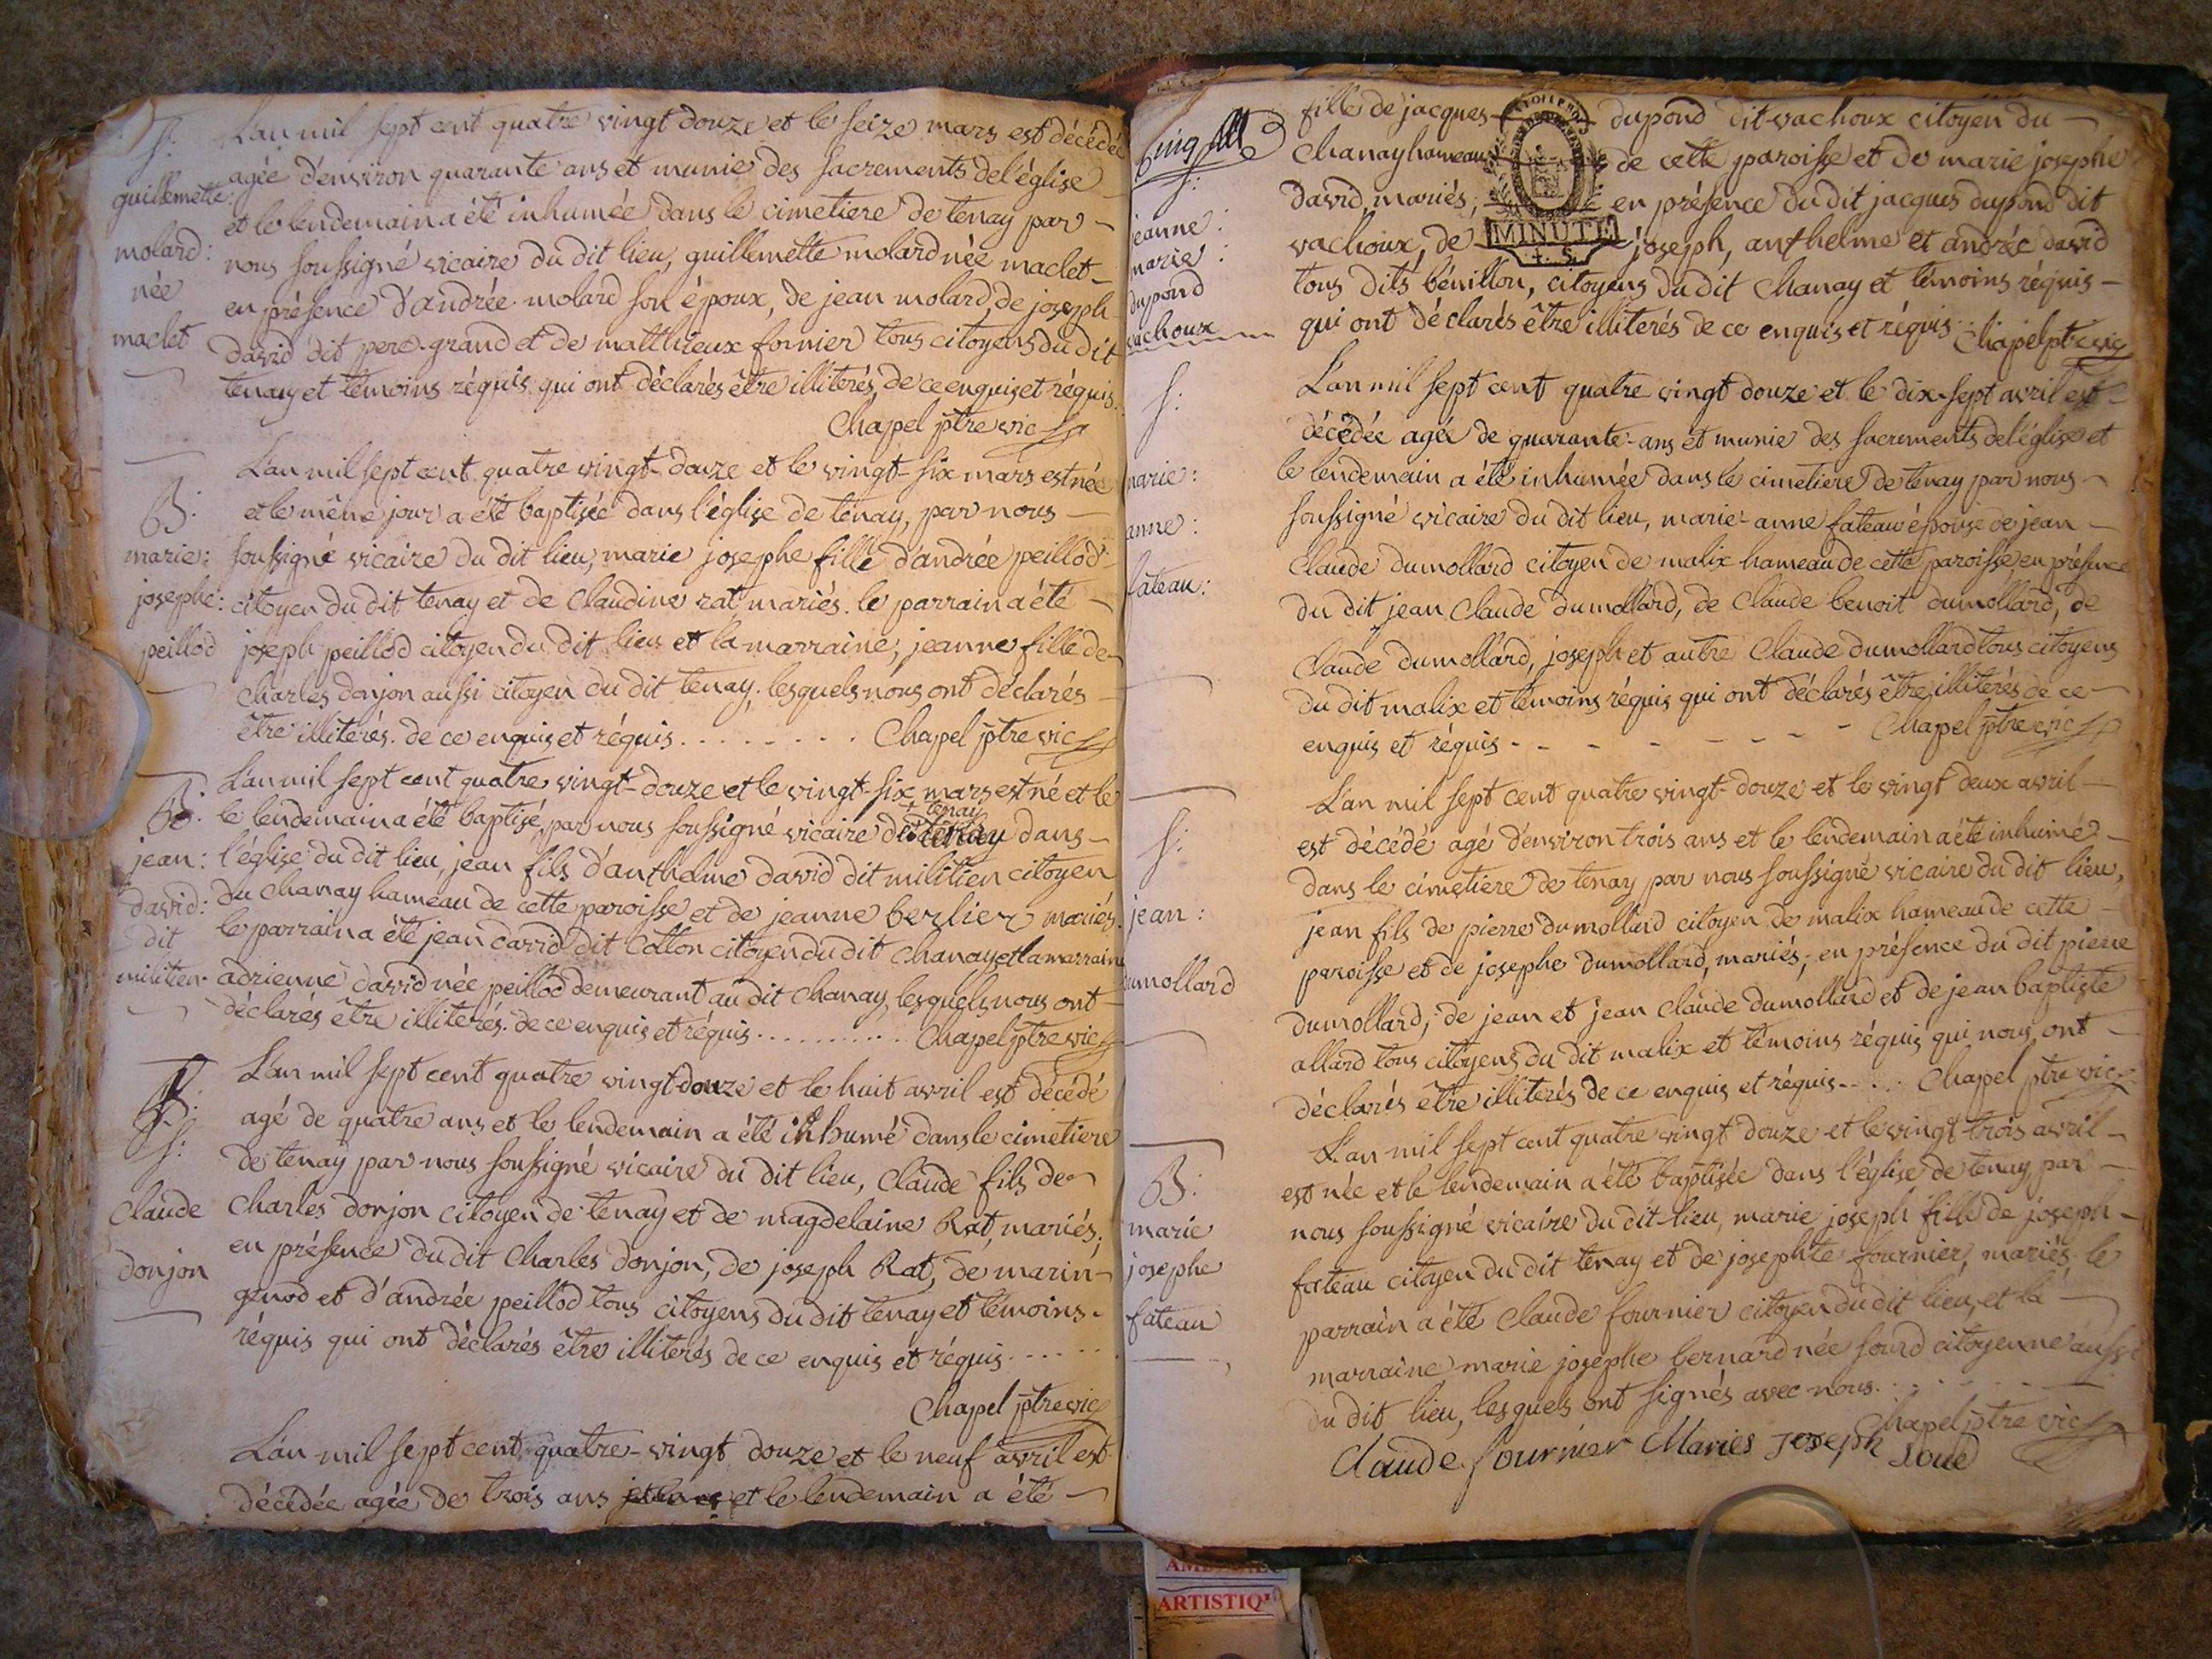 S:
guillemette:
molard:
née
maclet
L'an mil sept cent quatre vingt douze et le seize mars est décédée
agée d'environ quarante ans et munie des sacrements de l'église
et le lendemain a été inhumée dans le cimetiere de tenay par
nous soussigné vicaire du dit lieu, guillemette molard née maclet
en présence d'andrée molard son époux, de jean molard, de joseph
david dit pere-grand et de matthieux fornier tous citoyens du dit
tenay et témoins réquis qui ont déclarés être illiterés, de ce enquis et réquis.
Chapel ptre vic
B:
marie:
josephe:
peillod
L'an mil sept cent quatre vingt-douze et le vingt-six mars est née
et le même jour a été baptisée dans l'église de tenay, par nous
soussigné vicaire du dit lieu, marie josephe fille d'andrée peillod
citoyen du dit tenay et de Claudine rat mariés. le parrain a été
joseph peillod citoyen du dit lieu et la marraine, jeanne fille de
Charles donjon aussi citoyen du dit tenay, lesquels nous ont déclarés
être illiterés. de ce enquis et réquis. . . . . . . . Chapel ptre vic
B:
jean:
david:
dit
militien
L'an mil sept cent quatre vingt-douze et le vingt-six mars est né et le
+ tenay
le lendemain a été baptisé, par nous soussigné vicaire de dans
l'église du dit lieu, jean fils d'anthelme david dit militien citoyen
du Chanay hameau de cette paroisse et de jeanne berlier mariés.
le parrain a été jean david dit Collon citoyen du dit Chanay et la marraine
adrienne david née peillod demeurant au dit Chanay, lesquels nous ont
déclarés être illiterés. de ce enquis et réquis . . . . . . . . . . Chapel ptre vic
S:
Claude
donjon
L'an mil sept cent quatre vingt douze et le huit avril est décédé
agé de quatre ans et le lendemain a été inhumé dans le cimetiere
de tenay par nous soussigné vicaire du dit lieu, Claude fils de
Charles donjon citoyen de tenay et de magdelaine Rat, mariés;
en présence du dit Charles donjon, de joseph Rat, de marin
gunod et d'andrée peillod tous citoyens du dit tenay et témoins
réquis qui ont déclarés être illiterés de ce enquis et réquis. . . . . .
Chapel ptre vic
L'an mil sept cent quatre-vingt douze et le neuf avril est
décédée agée de trois ans et le lendemain a été
Cinq
S:
jeanne:
marie:
dupond
vachoux
fille de jacques dupond dit vachoux citoyen du
Chanay hameau de cette paroisse et de marie josephe
david, mariés; en présence du dit jacques dupond dit
vachoux, de joseph, anthelme et andrée david
MINUTE
4. S.
tous dits bénillon, citoyens du dit Chanay et témoins réquis
qui ont déclarés être illiterés de ce enquis et réquis. Chapel ptre vic
S:
marie:
anne:
fateau:
L'an mil sept cent quatre vingt douze et le dix-sept avril est
décédée agée de quarante-ans et munie des sacrements de l'église et
le lendemain a été inhumée dans le cimetiere de tenay par nous
soussigné vicaire du dit lieu, marie-anne fateau épouse de jean
Claude dumollard citoyen de malix hameau de cette paroisse en présence
du dit jean Claude dumollard, de Claude benoit dumollard, de
Claude dumollard, joseph et autre Claude dumollard tous citoyens
du dit malix et témoins réquis qui ont déclarés être illiterés de ce
enquis et réquis - - - - - - - - Chapel ptre vic
S:
jean:
dumollard
L'an mil sept cent quatre vingt-douze et le vingt deux avril
est décédé agé d'environ trois ans et le lendemain a été inhumé
dans le cimetiere de tenay par nous soussigné vicaire du dit lieu,
jean fils de pierre dumollard citoyen de malix hameau de cette
paroisse et de josephe dumollard, mariés; en présence du dit pierre
dumollard, de jean et jean Claude dumollard et de jean baptiste
allard tous citoyens du dit malix et témoins réquis qui nous ont
déclarés être illiterés de ce enquis et réquis - - . . . Chapel ptre vic
B:
marie
josephe
fateau
L'an mil sept cent quatre vingt douze et le vingt trois avril
est née et le lendemain a été baptisée dans l'église de tenay, par
nous soussigné vicaire du dit-lieu, marie joseph fille de joseph
fateau citoyen du dit tenay et de josephte fournier, mariés. le
parrain a été Claude fournier citoyen du dit lieu, et la
marraine marie josephe bernard née sourd citoyenne aussi
du dit lieu, lesquels ont signés avec nous. . . . . .
Chapel ptre vic
Claude fournier Maries joseph Sourd
ARTISTIQ